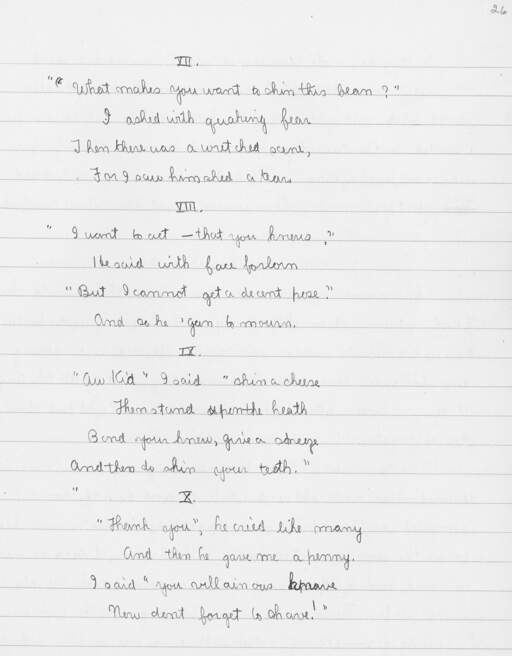 26
VII.
"What makes you want to shin this bean?"
I asked with quaking fear
Then there was a wretched scene,
For I saw him shed a tear.
VIII.
"I want to act — that you knows,"
He said with face forlorn
"But I cannot get a decent pose."
And so he 'gan to mourn.
IX.
"Aw Kid" I said "shin a cheese
Then stand upon the heath
Bend your knees, give a sneeze
And then do shin your teeth."
"
X.
"Thank you", he cried like many
And then he gave me a penny.
I said "you villainous knave
Now dont forget to shave!"